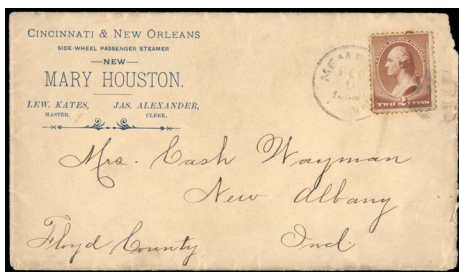 CINCINNATI & NEW ORLEANS
SIDE-WHEEL PASSENGER STEAMER
—NEW—
MARY HOUSTON.
LEW. KATES, JAS. ALEXANDER,
MASTER. CLERK.
TWO 2 CENTS
Mrs. Cash Wayman
New Albany
Floyd County Ind